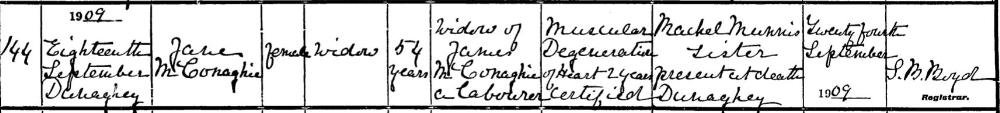 144
1909
Eighteenth
September
Dunaghey
Jane
McConaghie
female
Widow
54
years
Widow of
James
McConaghie
a Labourer
Muscular
Degeneration
of Heart 2 years
Certified
Sister
present at death
Dunaghey
Twenty fourth
September
1909
S. B. Boyd
Registrar.